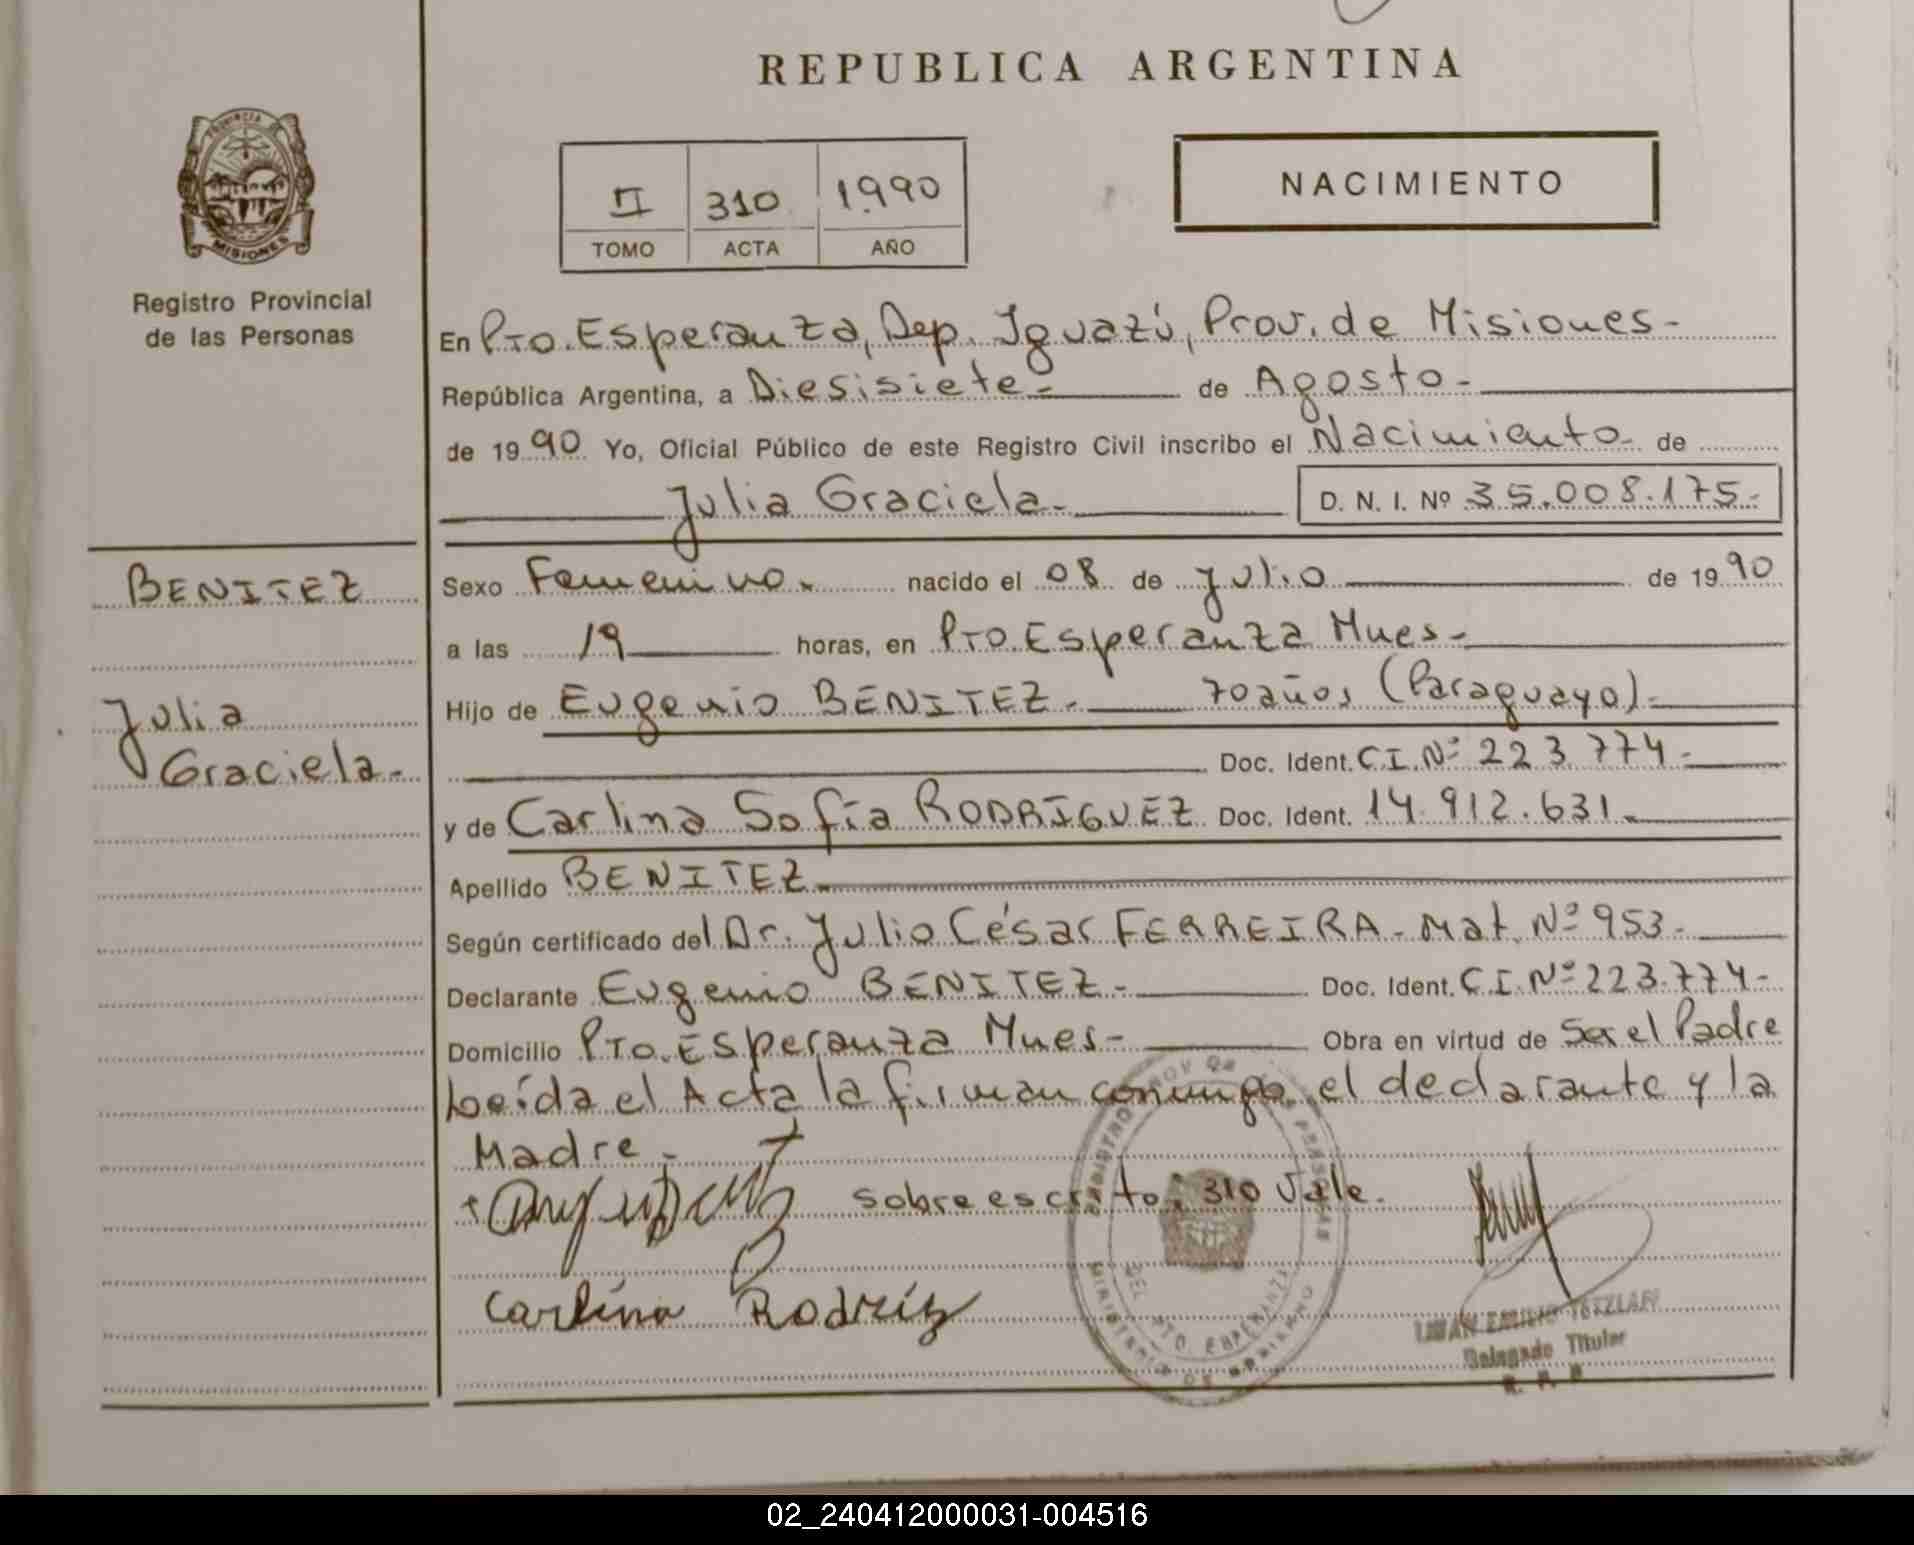 REPUBLICA ARGENTINA
PROVINCIA DE
MISIONES
Registro Provincial
de las Personas
II 310 1.990
TOMO ACTA AÑO
NACIMIENTO
En Pto. Esperanza, Dep. Iguazú, Prov. de Misiones-
República Argentina, a Diesisiete- de Agosto-
de 19 90 Yo, Oficial Público de este Registro Civil inscribo el Nacimiento- de
Julia Graciela- D. N. I. Nº 35.008.175-
BENITEZ
Julia
Graciela-
Sexo Femenino. nacido el 08 de Julio de 19 90
a las 19 horas, en Pto. Esperanza Mnes-
Hijo de Eugenio BENITEZ- 70 años (Paraguayo)-
Doc. Ident. C.I. Nº 223.774-
y de Carlina Sofía RODRÍGUEZ Doc. Ident. 14.912.631-
Apellido BENITEZ-
Según certificado del Dr. Julio César FERREIRA- Mat. Nº 953-
Declarante Eugenio BENITEZ- Doc. Ident. C.I. Nº 223.774-
Domicilio Pto. Esperanza Mnes- Obra en virtud de Ser el Padre
Leída el Acta la firman conmigo el declarante y la
Madre-
sobre escrito: 310 Vale.
Carlina Rodríz
PTO. ESPERANZA
EMILIO TETZLAFF
Delegado Titular
02_240412000031-004516